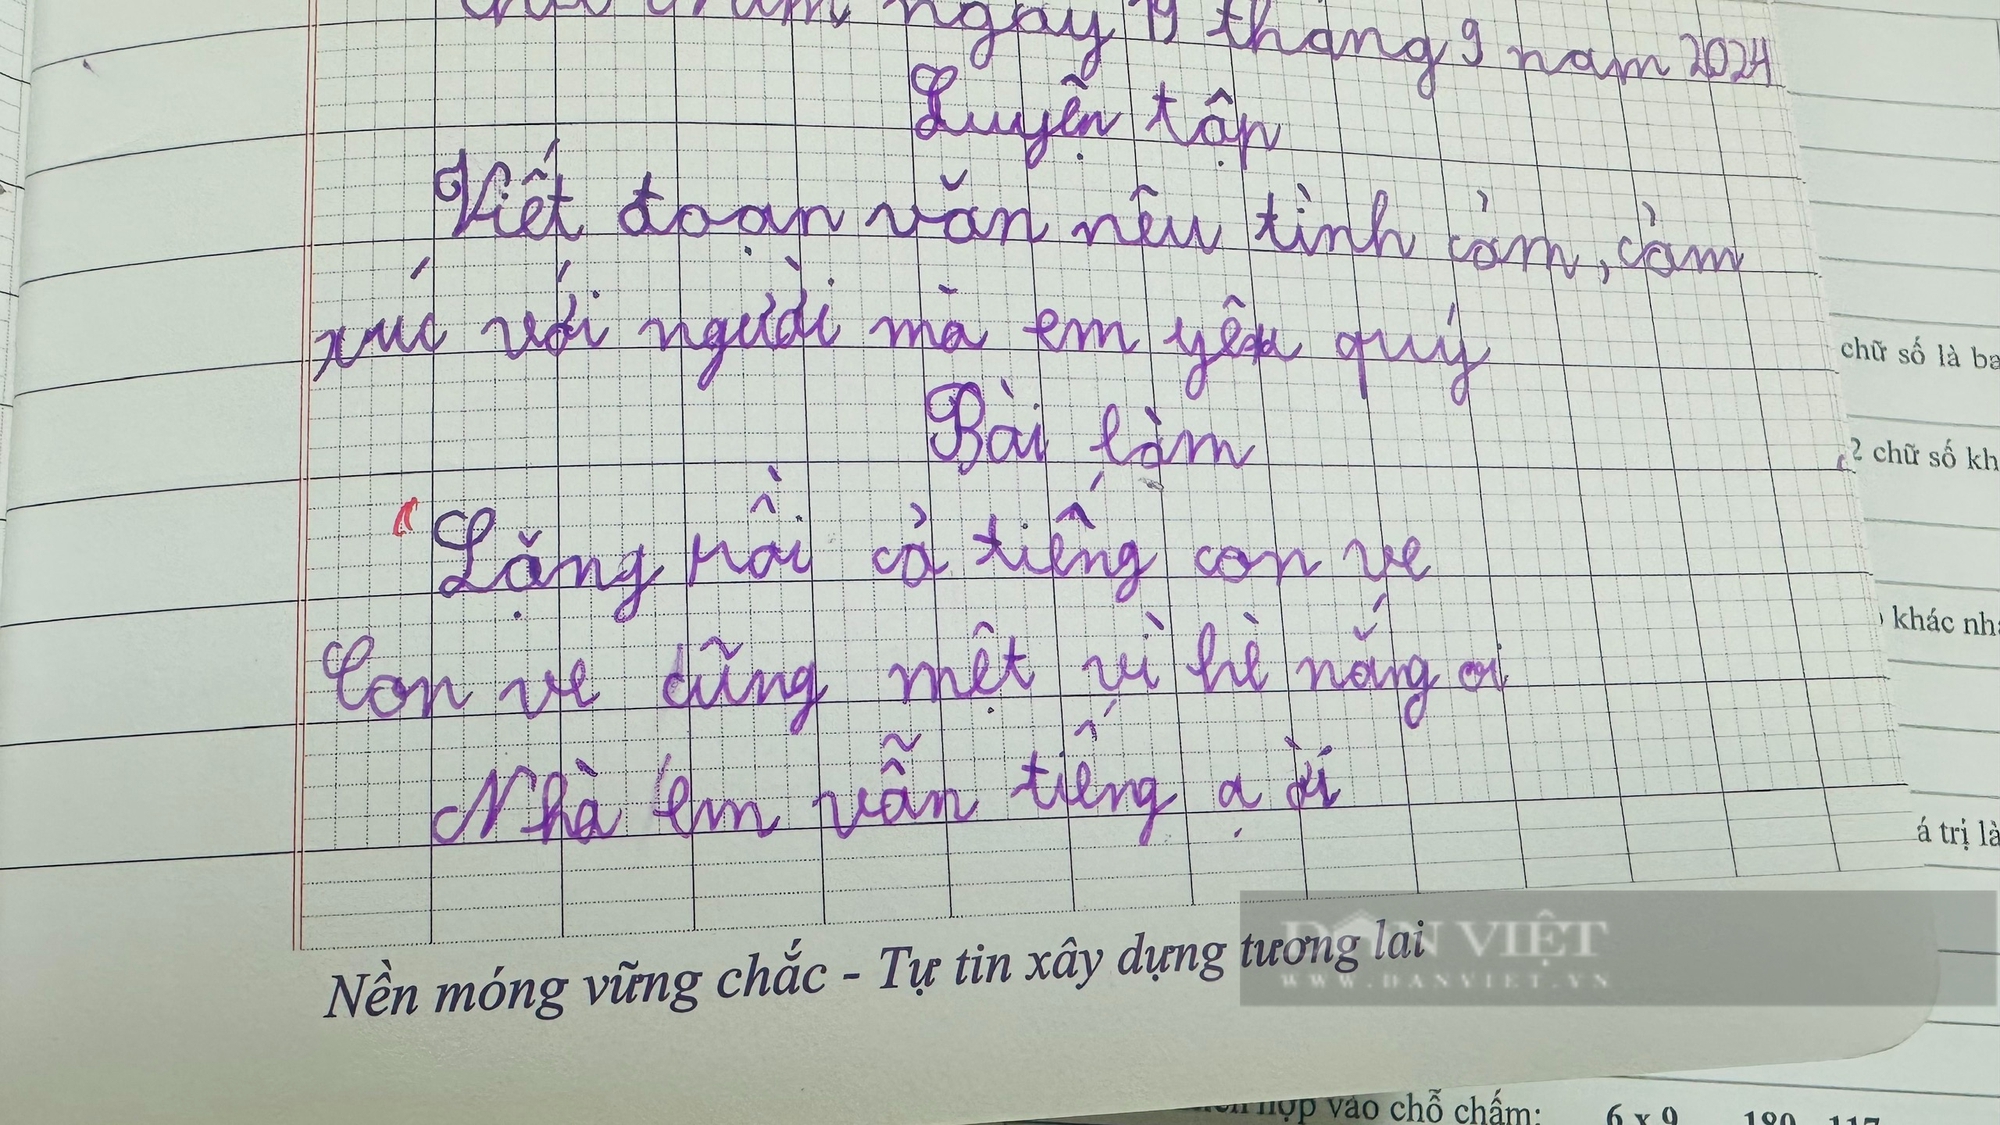 ngày 19 tháng 9 năm 2024
Luyện tập
Viết đoạn văn nêu tình cảm, cảm
xúc với người mà em yêu quý
Bài làm
"Lặng rồi cả tiếng con ve
Con ve cũng mệt vì hè nắng oi
Nhà em vẫn tiếng ạ ời
Nền móng vững chắc - Tự tin xây dựng tương lai
DÂN VIỆT
WWW.DANVIET.VN
chữ số là ba
2 chữ số kh
khác nha
á trị là
hợp vào chỗ chấm: 6 x 9 180 117